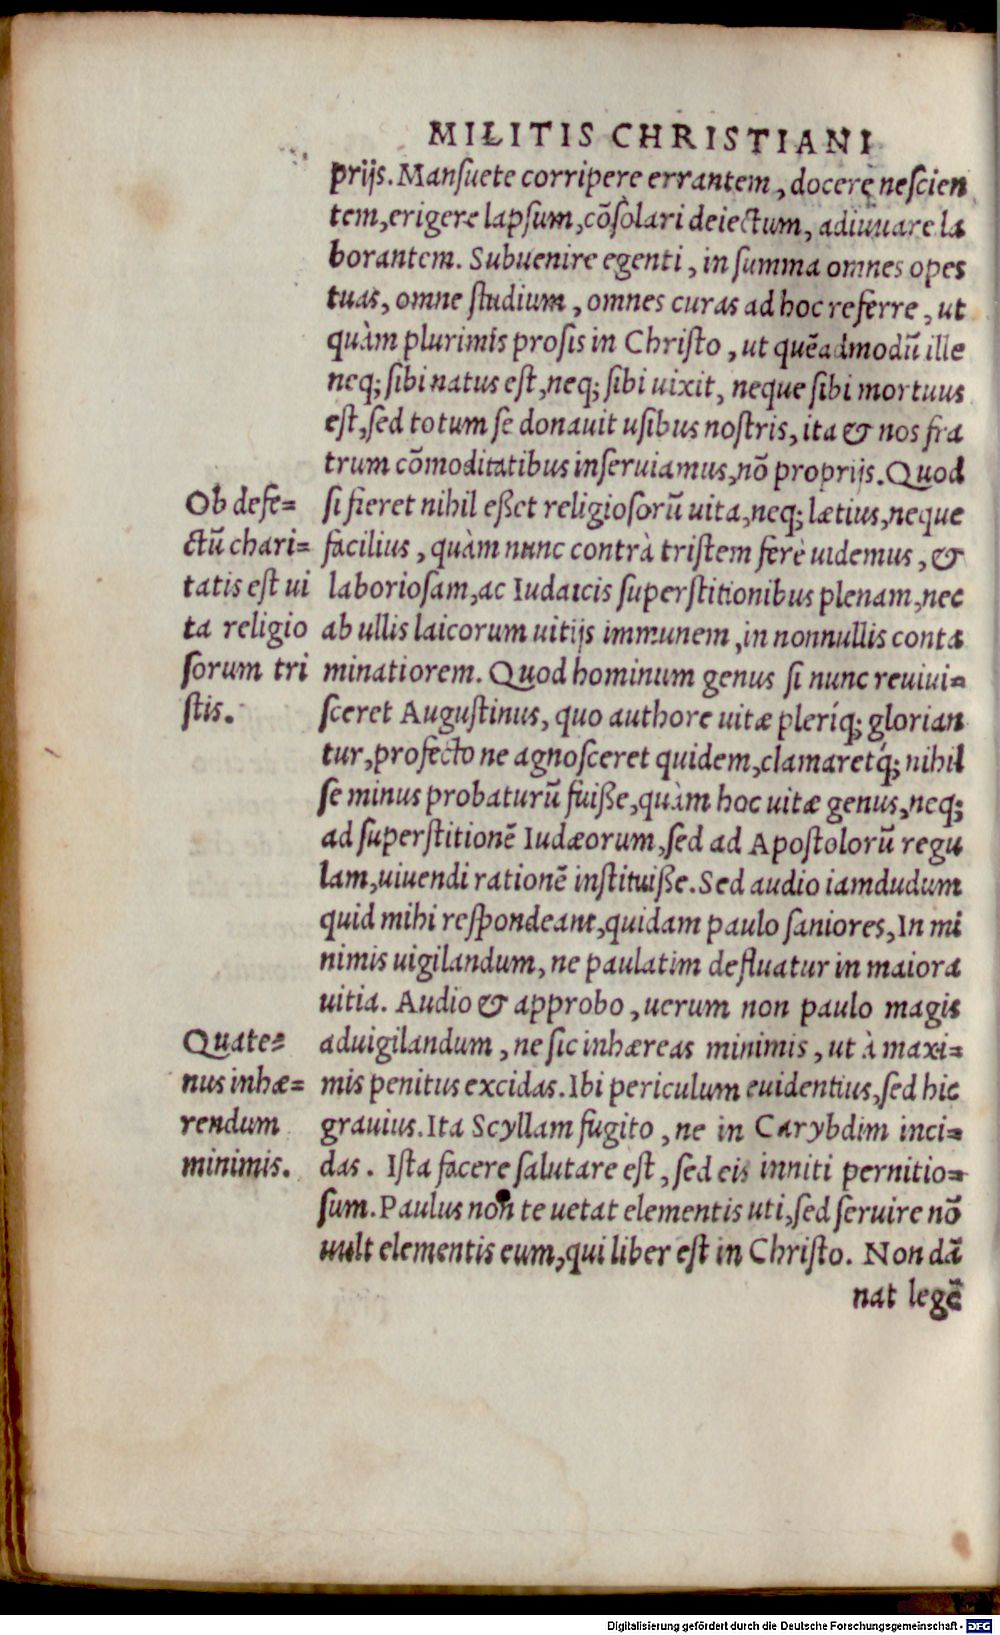 MILITIS CHRISTIANI
prijs. Mansuete corripere errantem, docere nescien
tem, erigere lapsum, cõsolari deiectum, adiuuare la
borantem. Subuenire egenti, in summa omnes opes
tuas, omne studium, omnes curas ad hoc referre, ut
quàm plurimis prosis in Christo, ut quẽadmodũ ille
neq; sibi natus est, neq; sibi uixit, neque sibi mortuus
est, sed totum se donauit usibus nostris, ita & nos fra
trum cõmoditatibus inseruiamus, nõ proprijs. Quod
si fieret nihil eßet religiosorũ uita, neq; lætius, neque
facilius, quàm nunc contrà tristem ferè uidemus, &
laboriosam, ac Iudaicis superstitionibus plenam, nec
ab ullis laicorum uitijs immunem, in nonnullis conta
minatiorem. Quod hominum genus si nunc reuiui=
sceret Augustinus, quo authore uitæ pleríq; glorian
tur, profecto ne agnosceret quidem, clamaretq́; nihil
se minus probaturũ fuiße, quàm hoc uitæ genus, neq;
ad superstitionẽ Iudæorum, sed ad Apostolorũ regu
lam, uiuendi rationẽ instituiße. Sed audio iamdudum
quid mihi respondeant, quidam paulo saniores, In mi
nimis uigilandum, ne paulatim defluatur in maiora
uitia. Audio & approbo, uerum non paulo magis
aduigilandum, ne sic inhæreas minimis, ut à maxi=
mis penitus excidas. Ibi periculum euidentius, sed hic
grauius. Ita Scyllam fugito, ne in Carybdim inci=
das. Ista facere salutare est, sed eis inniti pernitio=
sum. Paulus non te uetat elementis uti, sed seruire nõ
uult elementis eum, qui liber est in Christo. Non dã
nat legẽ
Ob defe=
ctũ chari=
tatis est ui
ta religio
sorum tri
stis.
Quate=
nus inhæ=
rendum
minimis.
Digitalisierung gefördert durch die Deutsche Forschungsgemeinschaft - DFG